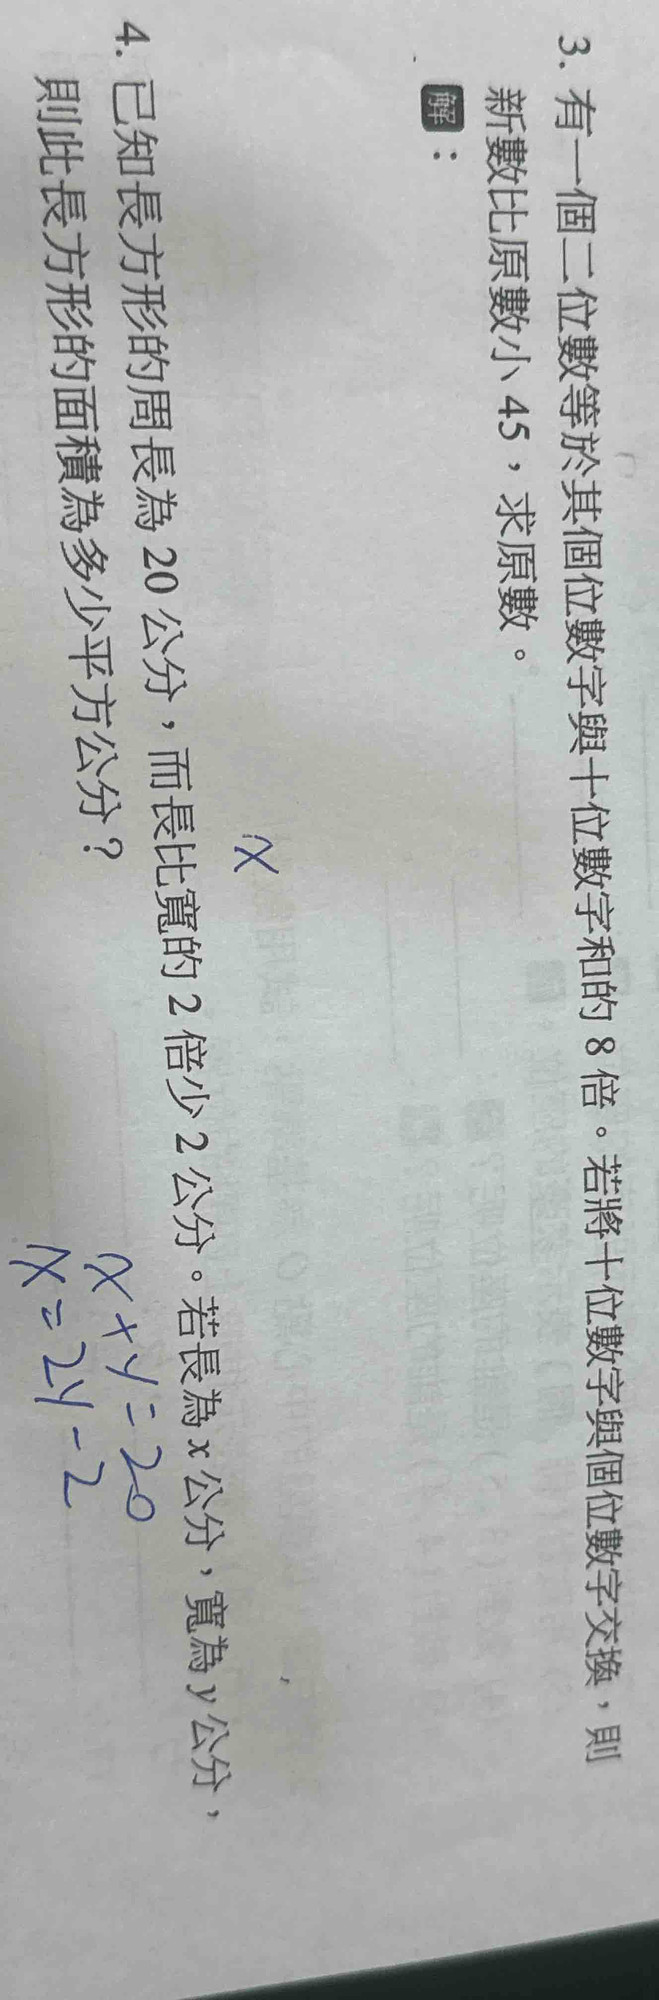 3. 有一個二位數等於其個位數字與十位數字和的 8 倍。若將十位數字與個位數字交換，則
新數比原數小 45，求原數。
解：
x
4. 已知長方形的周長為 20 公分，而長比寬的 2 倍少 2 公分。若長為 x 公分，寬為 y 公分，
則此長方形的面積為多少平方公分？
x+y=20
x=2y-2